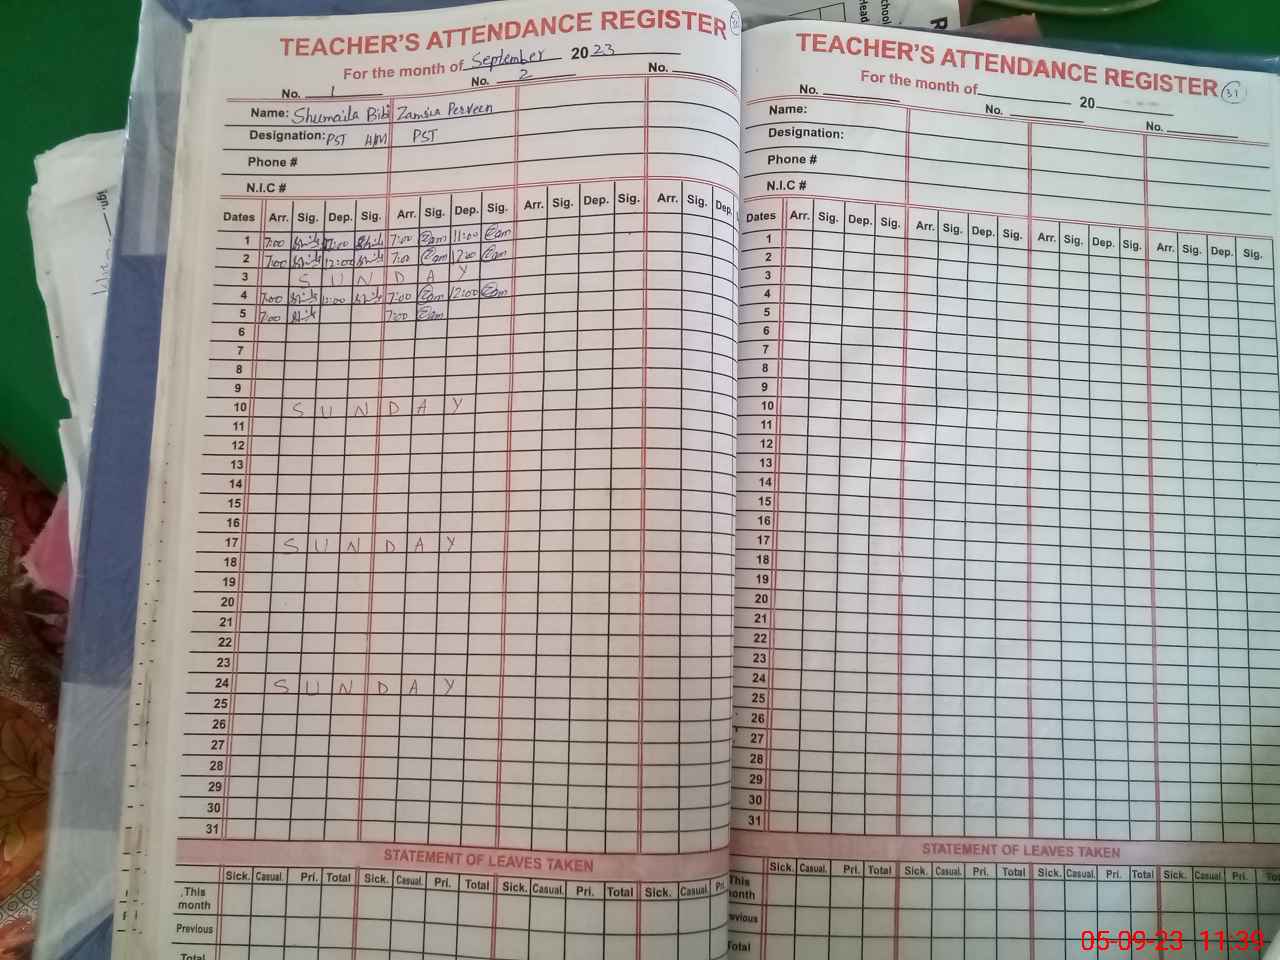 TEACHER'S ATTENDANCE REGISTER
For the month of September 2023
No. 1 No. 2 No.
Name: Shumaila Bibi Zamir Perveen
Designation: PST H/M PST
Phone #
N.I.C #
Dates Arr. Sig. Dep. Sig. Arr. Sig. Dep. Sig. Arr. Sig. Dep. Sig. Arr. Sig. Dep.
1 7:00 11:00 7:00 11:00
2 7:00 12:00 7:00 12:00
3 SUNDAY
4 7:00 7:00 12:00
5 7:00 7:00
6
7
8
9
10 SUNDAY
11
12
13
14
15
16
17 SUNDAY
18
19
20
21
22
23
24 SUNDAY
25
26
27
28
29
30
31
STATEMENT OF LEAVES TAKEN
Sick. Casual. Pri. Total Sick. Casual. Pri. Total Sick. Casual. Pri. Total Sick. Casual. Pri.
This month
Previous
Total
TEACHER'S ATTENDANCE REGISTER 31
For the month of 20
No. No. No.
Name:
Designation:
Phone #
N.I.C #
Dates Arr. Sig. Dep. Sig. Arr. Sig. Dep. Sig. Arr. Sig. Dep. Sig. Arr. Sig. Dep. Sig.
1
2
3
4
5
6
7
8
9
10
11
12
13
14
15
16
17
18
19
20
21
22
23
24
25
26
27
28
29
30
31
STATEMENT OF LEAVES TAKEN
Sick. Casual. Pri. Total Sick. Casual. Pri. Total Sick. Casual. Pri. Total Sick. Casual. Pri.
This month
Total
05-09-23 11:39